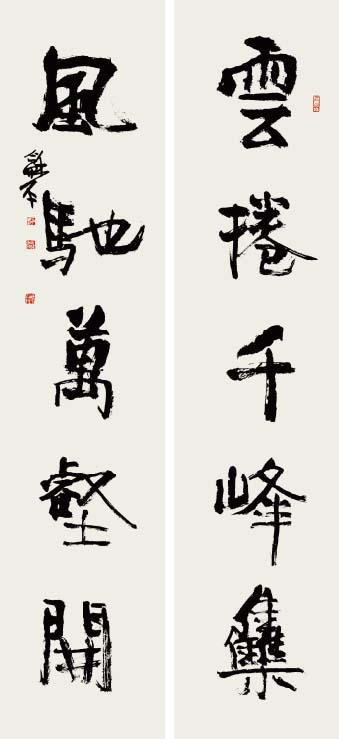 雲捲千峰集
風馳萬壑開